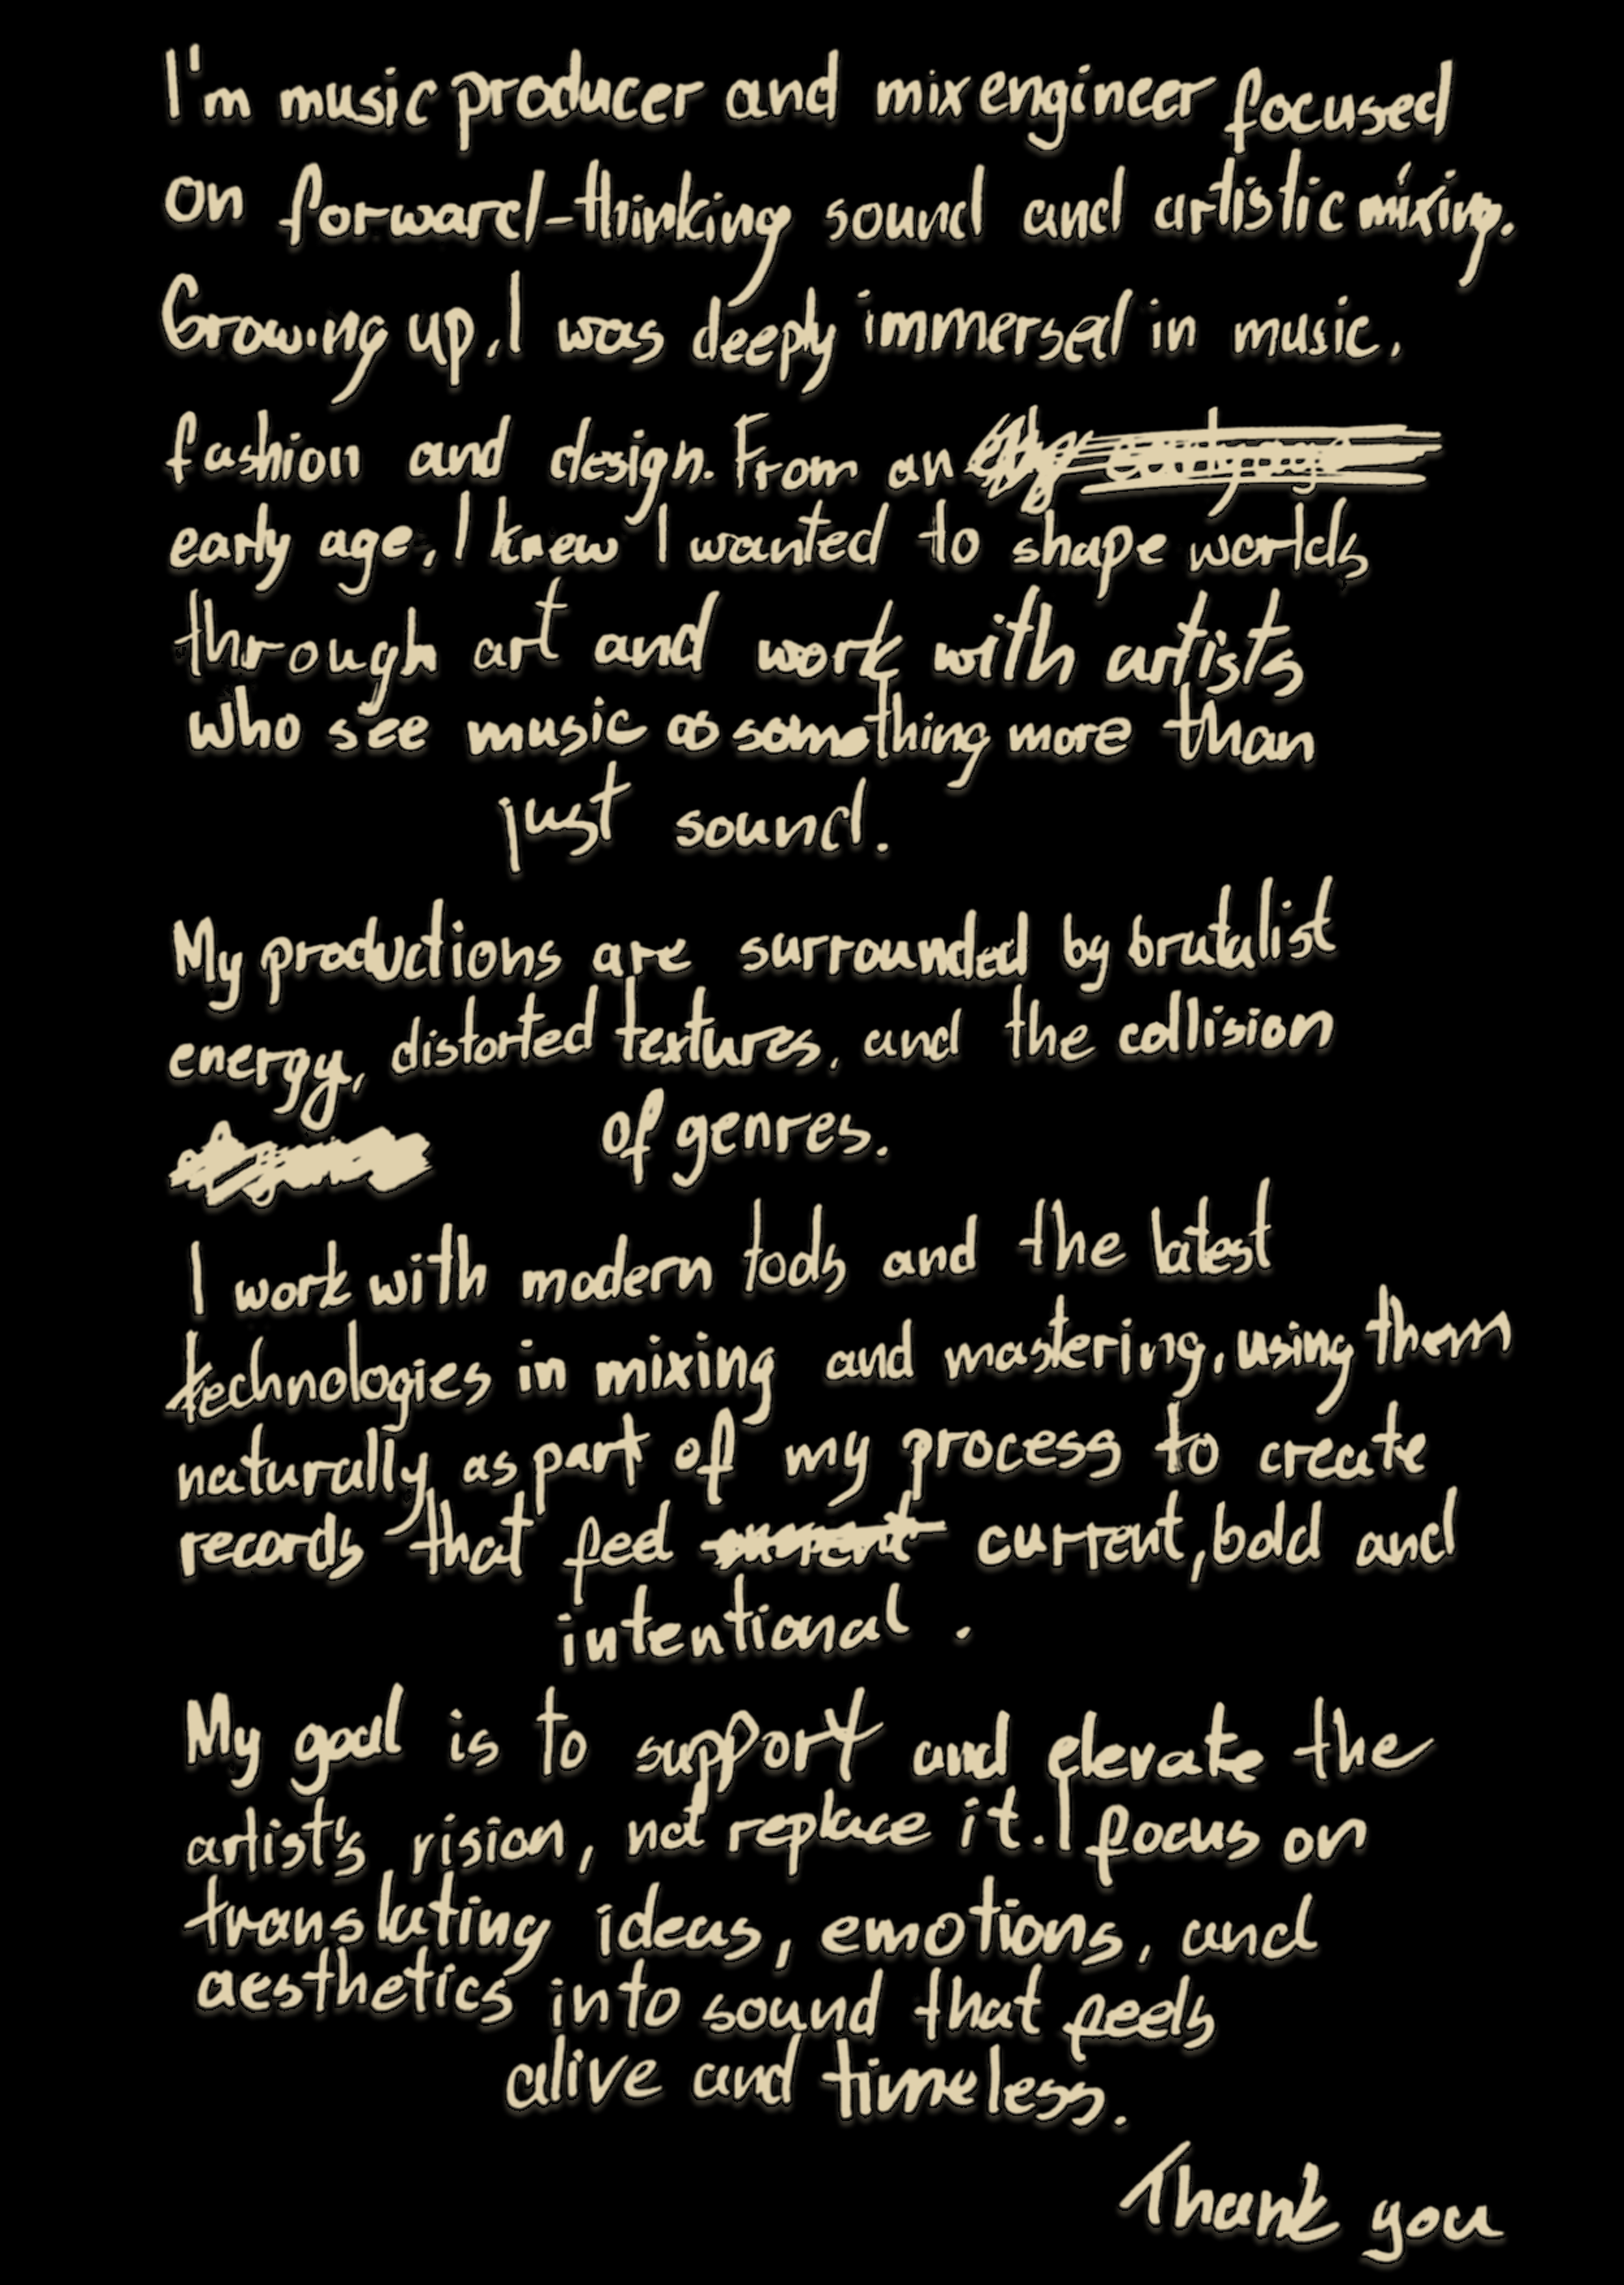 I'm music producer and mix engineer focused
on forward-thinking sound and artistic mixing.
Growing up, I was deeply immersed in music,
fashion and design. From an early age
early age, I knew I wanted to shape worlds
through art and work with artists
who see music as something more than
just sound.
My productions are surrounded by brutalist
energy, distorted textures, and the collision
of genres.
I work with modern tools and the latest
technologies in mixing and mastering, using them
naturally as part of my process to create
records that feel current current, bold and
intentional.
My goal is to support and elevate the
artist's vision, not replace it. I focus on
translating ideas, emotions, and
aesthetics into sound that feels
alive and timeless.
Thank you